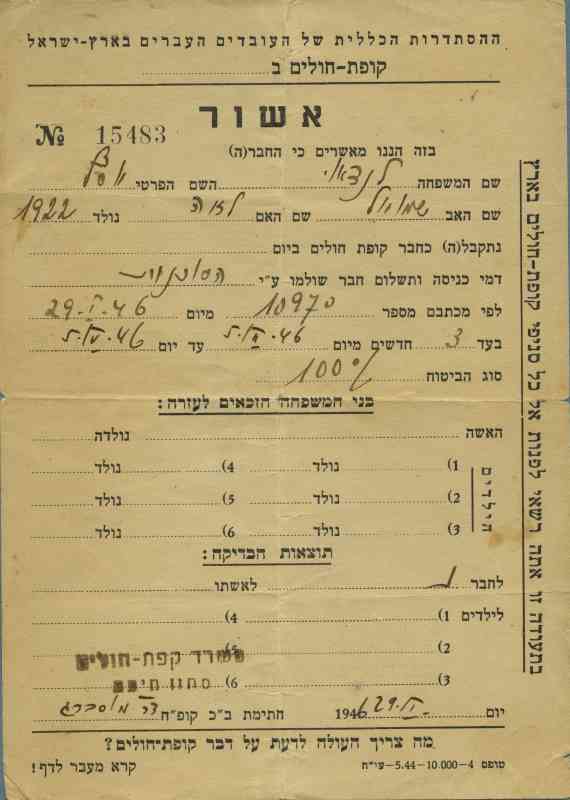 ההסתדרות הכללית של העובדים העברים בארץ-ישראל
קופת-חולים ב
אשור
№ 15483
בזה הננו מאשרים כי החבר(ה)
שם המשפחה לנדאי השם הפרטי יוסף
שם האב שמואל שם האם לאה נולד 1922
נתקבל(ה) כחבר קופת חולים ביום
דמי כניסה ותשלום חבר שולמו ע"י הסוכנות
לפי מכתבם מספר 10970 מיום 29-I-46
בעד 3 חדשים מיום עד יום
סוג הביטוח 100%
בני המשפחה הזכאים לעזרה:
האשה נולדה
הילדים
1) נולד 4) נולד
2) נולד 5) נולד
3) נולד 6) נולד
תוצאות הבדיקה:
לחבר לאשתו
לילדים 1) 4)
2) 5)
3) 6)
משרד קפת-חולים
יום 1946 חתימת ב"כ קופ"ח
מה צריך העולה לדעת על דבר קופת-חולים?
טופס 4-10.000-5.44-עי"ח
קרא מעבר לדף!
בתעודה זו אתה רשאי לפנות אל כל סניפי קופת-חולים בארץ